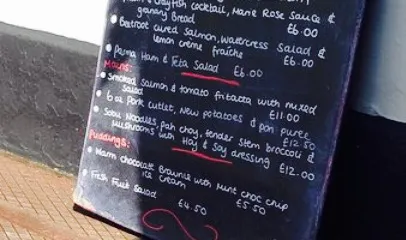 & Crayfish cocktail, Marie Rose Sauce &
granary Bread £6.00
Beetroot cured Salmon, Watercress Salad &
lemon crème fraîche £6.00
Parma Ham & Feta Salad £6.00
Mains:
Smoked Salmon & tomato fritatta with mixed
Salad £11.00
6oz Pork Cutlet, New potatoes & pea puree
£12.50
Soba Noodles, pak choy, tender stem broccoli &
Mushrooms with Hoy & Soy dressing £12.00
Puddings:
Warm chocolate Brownie with Mint choc chip
ice cream £5.50
Fresh Fruit Salad
£4.50